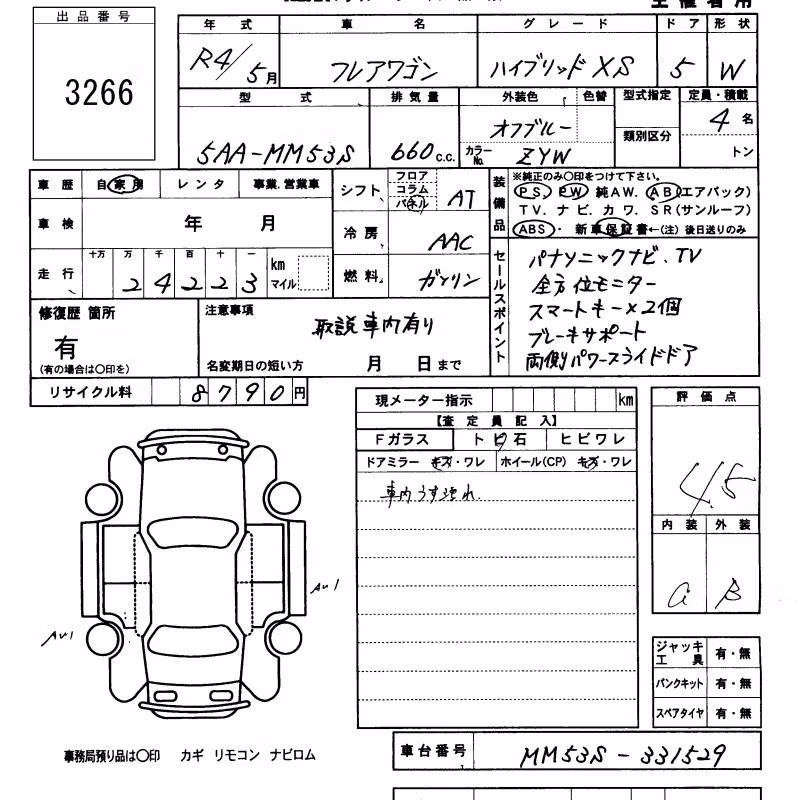 出品番号
3266
年式 車名 グレード ドア 形状
R4/5月 フレアワゴン ハイブリッドXS 5 W
型式 排気量 外装色 色替 型式指定 定員・積載
5AA-MM53S 660c.c. オフブルー 類別区分 4名
カラーNo. ZYW トン
車歴 自家用 レンタ 事業.営業車
車検 年 月
走行 十万 万 千 百 十 一
2 4 2 2 3 km マイル
シフト フロア コラム パネル AT
冷房 AAC
燃料 ガソリン
装備品 ※純正のみ〇印をつけて下さい。
PS. PW 純AW. AB(エアバック)
TV. ナビ. カワ. SR(サンルーフ)
ABS・ 新車保証書←(注)後日送りのみ
セールスポイント
パナソニックナビ、TV
全方位モニター
スマートキー×2個
ブレーキサポート
両側パワースライドドア
修復歴 箇所
有
(有の場合は〇印を)
注意事項
取説車内有り
名変期日の短い方 月 日まで
リサイクル料 8790円
現メーター指示 km
【査定員記入】
Fガラス トビ石 ヒビワレ
ドアミラー キズ・ワレ ホイール(CP) キズ・ワレ
車内うす汚れ.
評価点
4.5
内装 外装
a B
AU1
AU1
ジャッキ工具 有・無
パンクキット 有・無
スペアタイヤ 有・無
事務局預り品は〇印 カギ リモコン ナビロム
車台番号 MM53S-331529